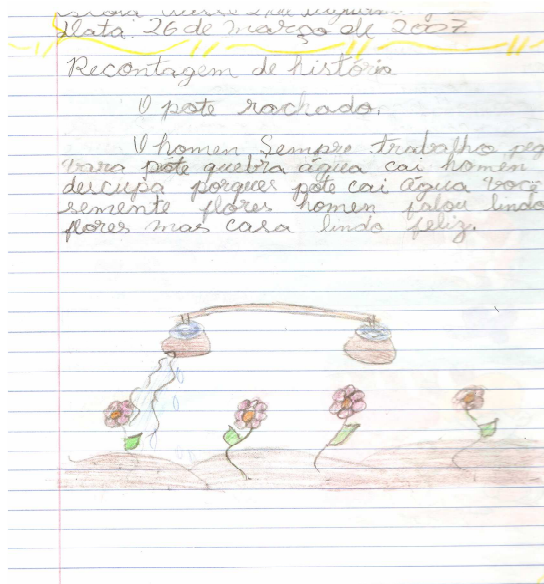 Data: 26 de março de 2007
Recontagem de história
O pote rachado.
O homen sempre trabalho peg
vara pote quebra água cai homen
descupa porques pote cai água você
semente flores homen falou lindo
flores mas casa lindo feliz.